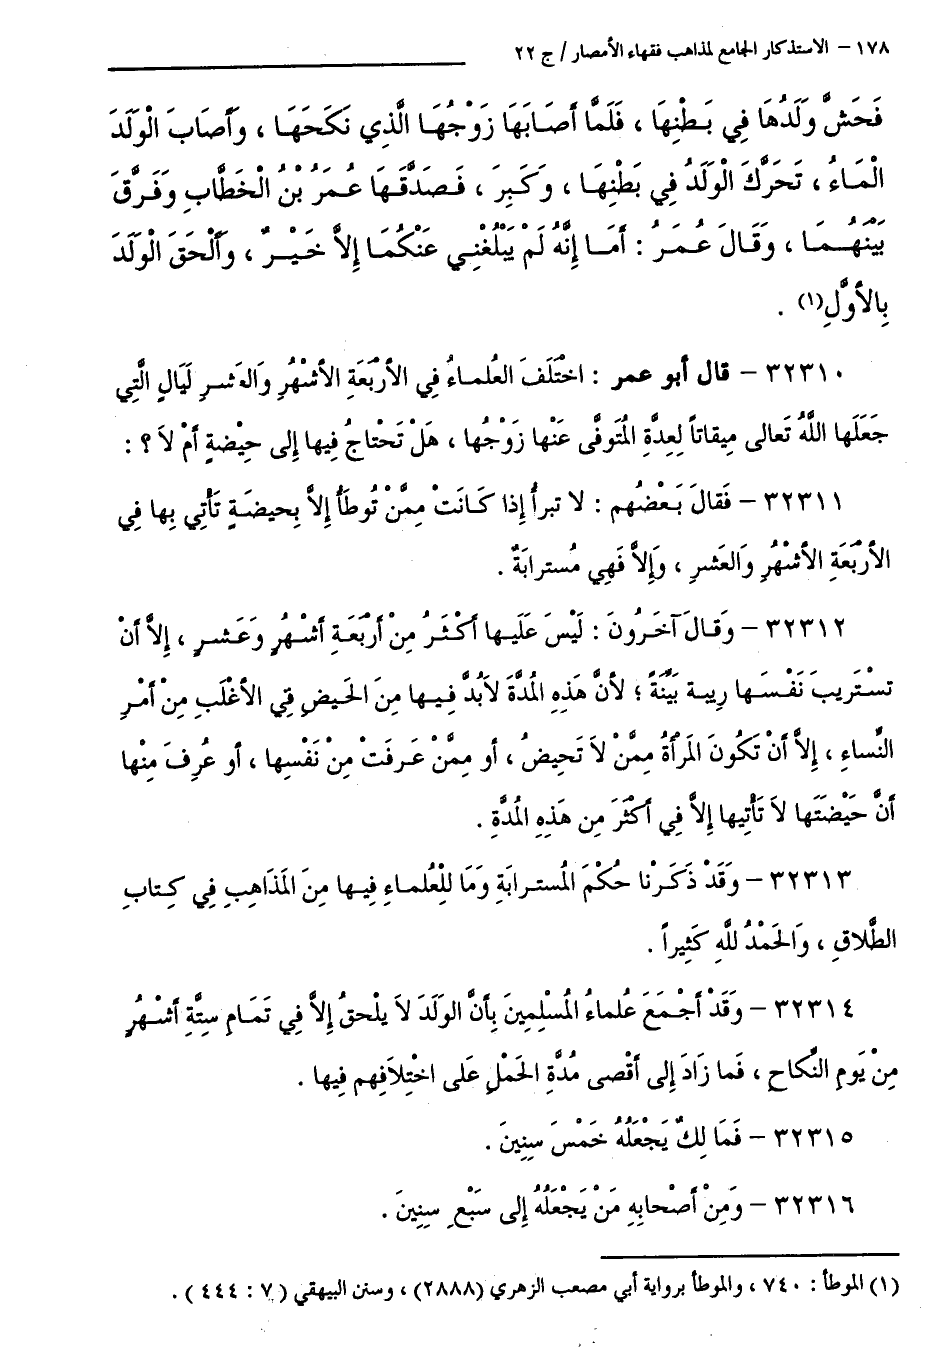 ١٧٨ – الاستذكار الجامع لمذاهب فقهاء الأمصار / ج ٢٢
فَحَشَّ وَلَدُهَا فِي بَطْنِهَا ، فَلَمَّا أَصَابَهَا زَوْجُهَا الَّذِي نَكَحَهَا ، وَأَصَابَ الْوَلَدَ
الْمَاءُ ، تَحَرَّكَ الْوَلَدُ فِي بَطْنِهَا ، وَكَبِرَ ، فَصَدَّقَهَا عُمَرُ بْنُ الْخَطَّابِ وَفَرَّقَ
بَيْنَهُمَا ، وَقَالَ عُمَرُ : أَمَا إِنَّهُ لَمْ يَبْلُغْنِي عَنْكُمَا إِلاَّ خَيْرٌ ، وَأَلْحَقَ الْوَلَدَ
بِالأَوَّلِ(١) .
٣٢٣١٠ – قال أبو عمر : اخْتَلَفَ العُلماءُ فِي الأَرْبَعَةِ الأَشْهُرِ وَالعَشرِ لَيَالٍ الَّتِي
جَعَلَها اللَّهُ تَعالى مِيقاتاً لِعِدةِ المُتَوفَّى عَنْها زَوْجُها ، هَلْ تَحْتاجُ فِيها إِلى حِيْضةٍ أَمْ لاَ ؟ :
٣٢٣١١ – فَقالَ بَعْضُهم : لا تبرأُ إِذا كَانَتْ مِمَّنْ تُوطَأُ إِلاَّ بِحيضَةٍ تَأْتي بِها فِي
الأَرْبَعَةِ الأَشْهُرِ وَالعَشرِ ، وَإِلاَّ فَهِي مُسترابَةٌ .
٣٢٣١٢ – وَقالَ آخَرُونَ : لَيْسَ عَلَيها أَكْثَرُ مِنْ أَرْبَعَةِ أَشْهُرٍ وَعَشرٍ ، إِلاَّ أَنْ
تسْتَرِيبَ نَفْسَها رِيبة بَيِّنَةً ؛ لأَنَّ هَذِهِ المُدَّةَ لاَبُدَّ فِيها مِنَ الحَيضِ فِي الأَغْلَبِ مِنْ أَمْرِ
النِّساءِ ، إِلاَّ أَنْ تَكُونَ المَرأَةُ مِمَّنْ لاَ تَحِيضُ ، أو مِمَّنْ عَرفَتْ مِنْ نَفْسِها ، أو عُرِفَ مِنْها
أَنَّ حَيْضَتَها لاَ تَأْتِيها إِلاَّ فِي أَكْثَرَ مِن هَذِهِ المُدَّةِ .
٣٢٣١٣ – وَقَدْ ذَكَرْنا حُكْمَ المُسترابَةِ وَمَا لِلْعُلماءِ فِيها مِنَ المَذَاهِبِ فِي كِتابِ
الطَّلاقِ ، وَالحَمْدُ للَّهِ كَثِيراً .
٣٢٣١٤ – وَقَدْ أَجْمَعَ عُلماءُ المُسْلِمِينَ بِأَنَّ الوَلَدَ لاَ يلْحقُ إِلاَّ فِي تَمَامِ سِتَّةِ أَشْهُرٍ
مِنْ يَومِ النِّكاحِ ، فَما زَادَ إِلى أَقْصى مُدَّةِ الحَمْلِ عَلى اخْتِلاَفِهم فِيها .
٣٢٣١٥ – فَمَا لِكٌ يَجْعَلُهُ خَمْسَ سِنِينَ .
٣٢٣١٦ – وَمِنْ أَصْحابِهِ مَنْ يَجْعَلُهُ إِلى سَبْعِ سِنِينَ .
(١) الموطأ : ٧٤٠ ، والموطأ برواية أبي مصعب الزهري (٢٨٨٨) ، وسنن البيهقي (٧ : ٤٤٤) .